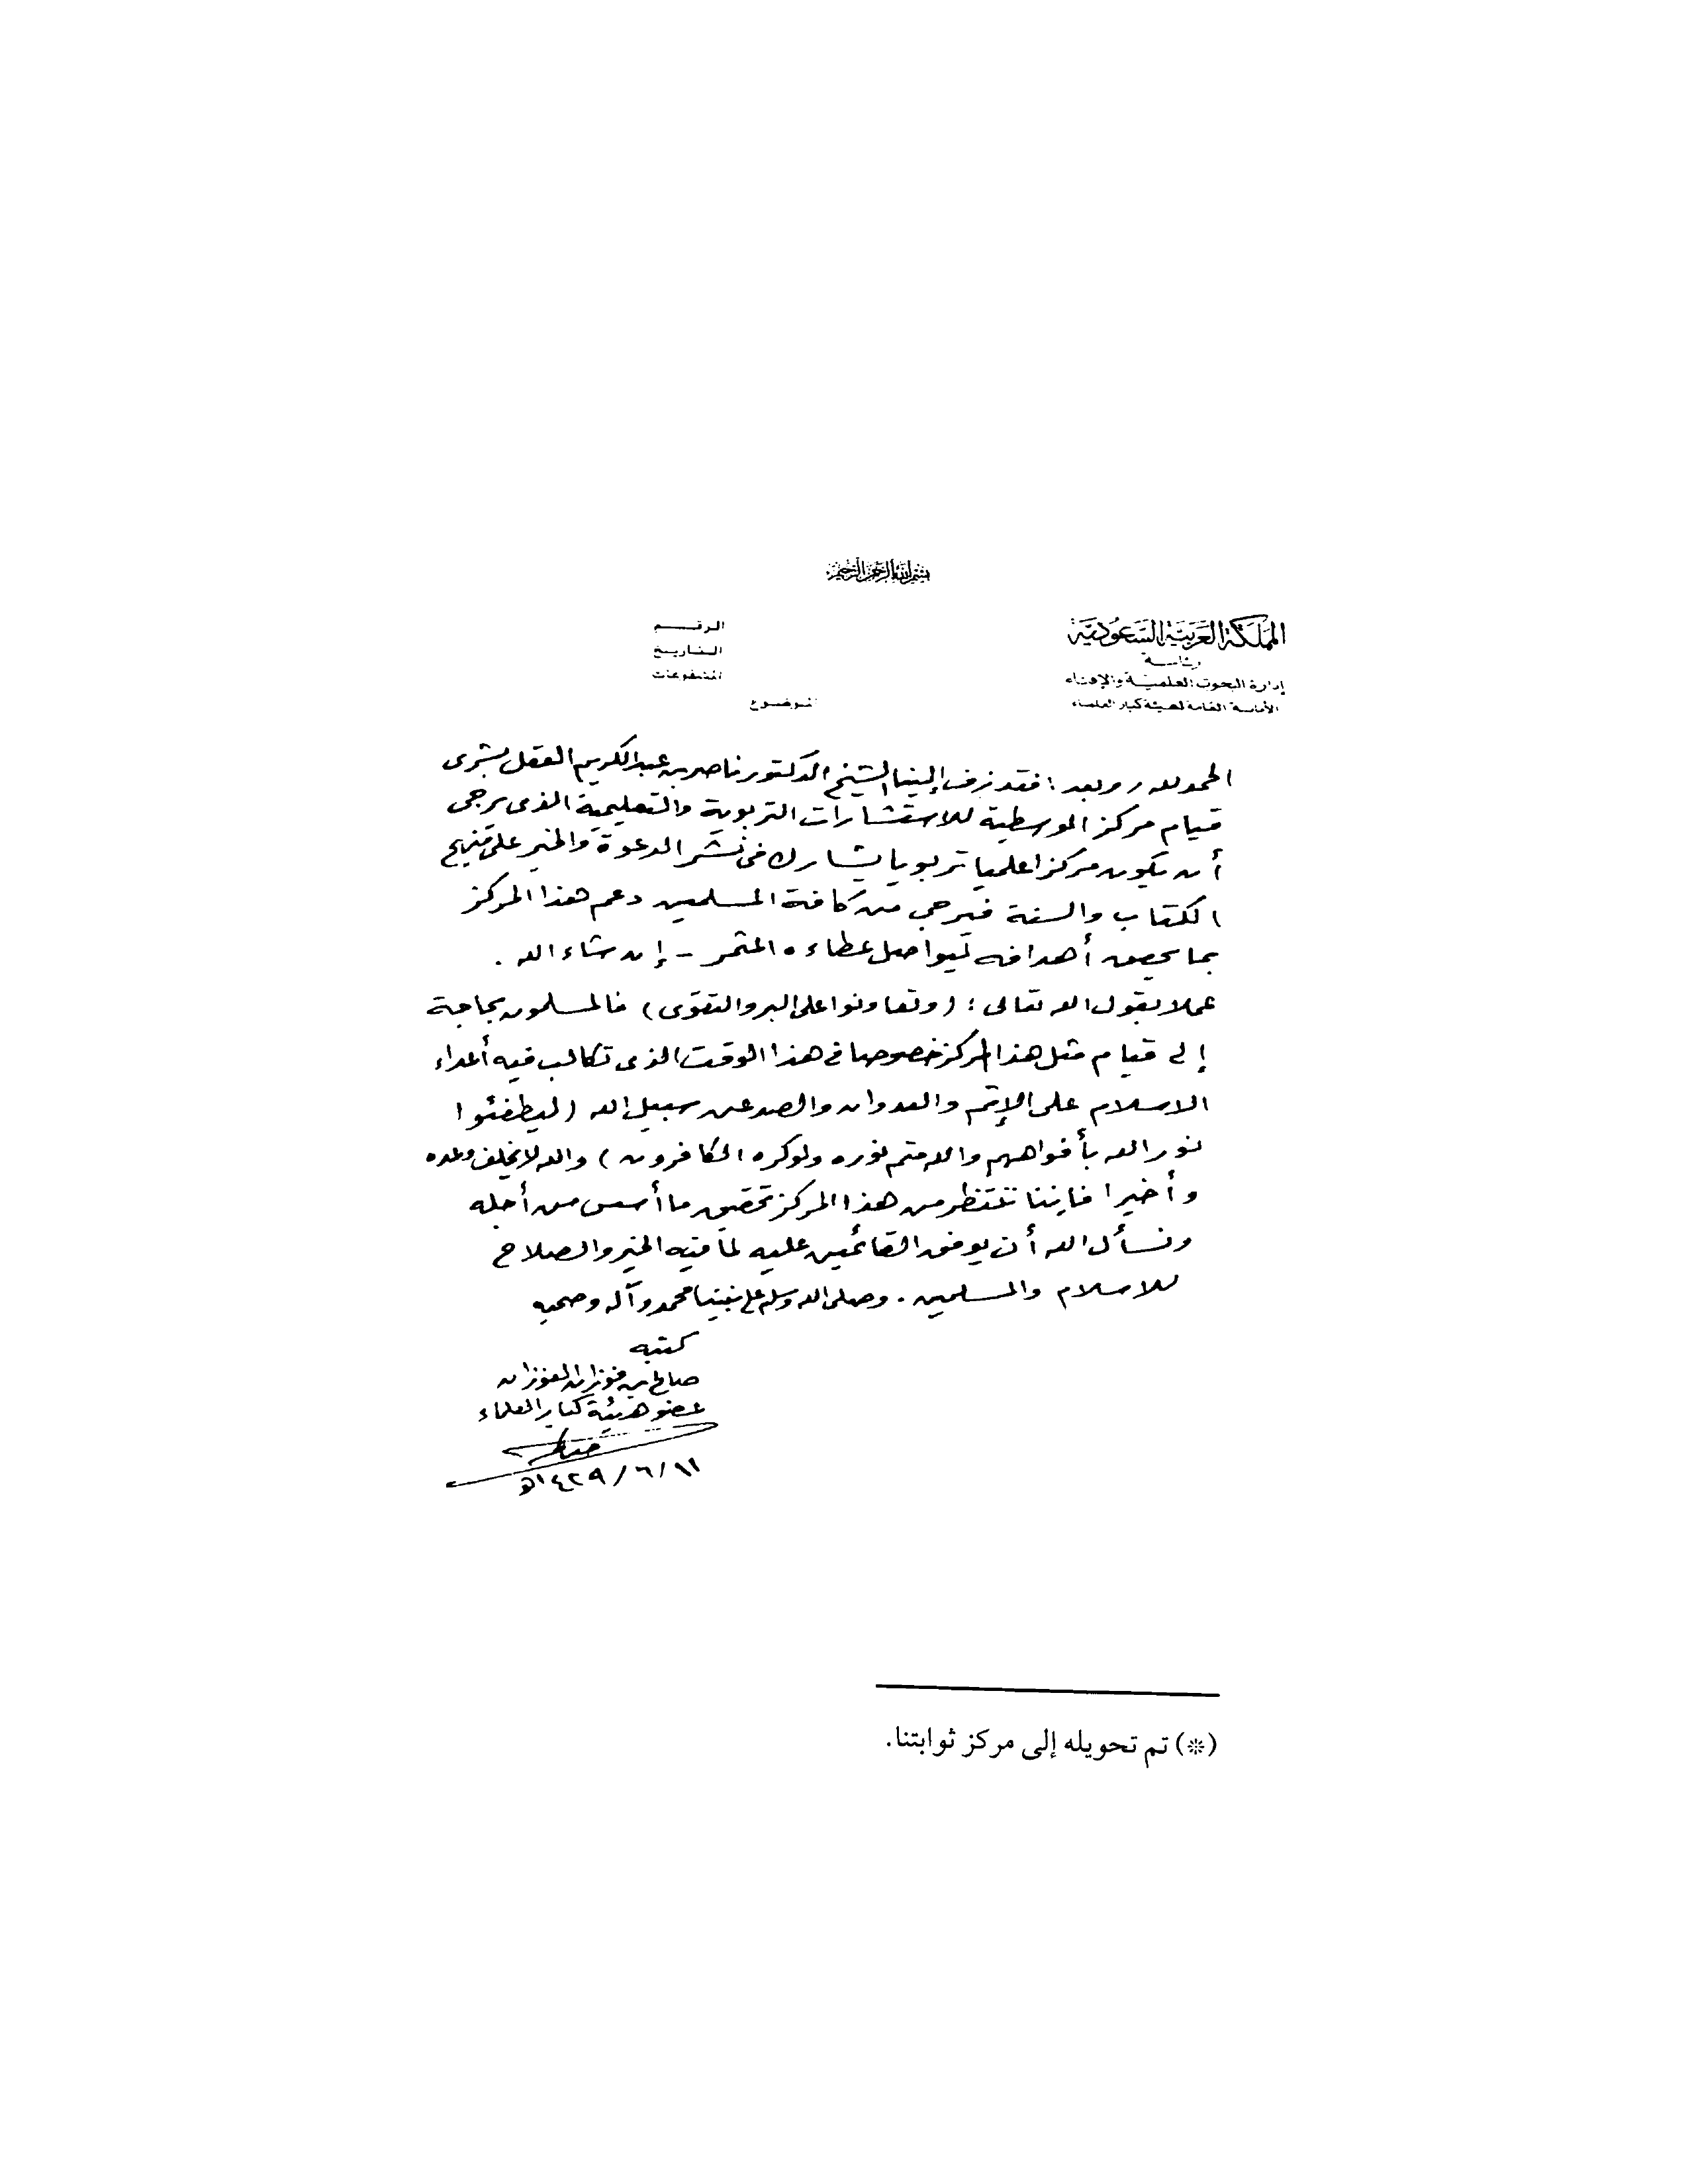 بسم الله الرحمن الرحيم
المملكة العربية السعودية
رئاسة
إدارة البحوث العلمية والإفتاء
الأمانة العامة لهيئة كبار العلماء
الرقم
التاريخ
المشفوعات
الموضوع
الحمد لله وبعد : فقد زف إلينا الشيخ الدكتور ناصر بن عبد الكريم العقل بشرى
قيام مركز الوسطية للاستشارات التربوية والتعليمية الذى يرجى
أن يكون مركزا علميا تربويا يشارك فى نشر الدعوة والخير على منهج
الكتاب والسنة فيرجى من كافة المسلمين دعم هذا المركز
بما يحقق أهدافه ليواصل عطاءه المثمر - إن شاء الله .
عملا بقول الله تعالى : ( وتعاونوا على البر والتقوى ) فالمسلمون بحاجة
إلى قيام مثل هذا المركز خصوصا فى هذا الوقت الذى تكالب فيه أعداء
الاسلام على الإثم والعدوان والصد عن سبيل الله ( ليطفئوا
نور الله بأفواههم والله متم نوره ولو كره الكافرون ) والله لا يخلف وعده
وأخيرا فإننا ننتظر من هذا المركز تحقيق ما أسس من أجله
ونسأل الله أن يوفق القائمين عليه لما فيه الخير والصلاح
للاسلام والمسلمين . وصلى الله وسلم على نبينا محمد وآله وصحبه
كتبه
صالح بن فوزان الفوزان
عضو هيئة كبار العلماء
١١/ ٦ / ١٤٢٩هـ
(*) تم تحويله إلى مركز ثوابتنا.